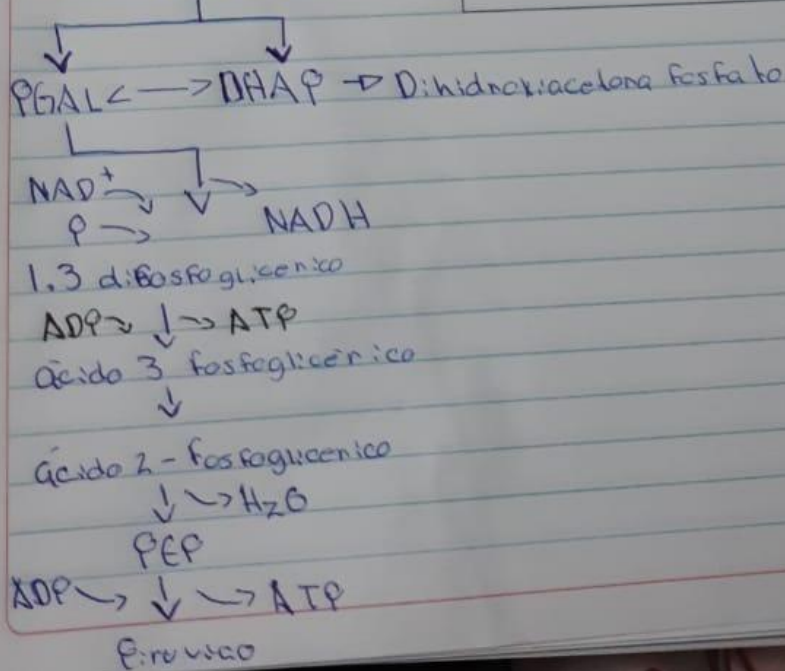 PGAL <—> DHAP → Dihidroxiacetona fosfato
NAD+
P → NADH
1.3 difosfoglicerico
ADP → ↓ → ATP
ácido 3 fosfoglicérico
↓
ácido 2-fosfoglicerico
↓ → H2O
PEP
ADP → ↓ → ATP
Piruvico